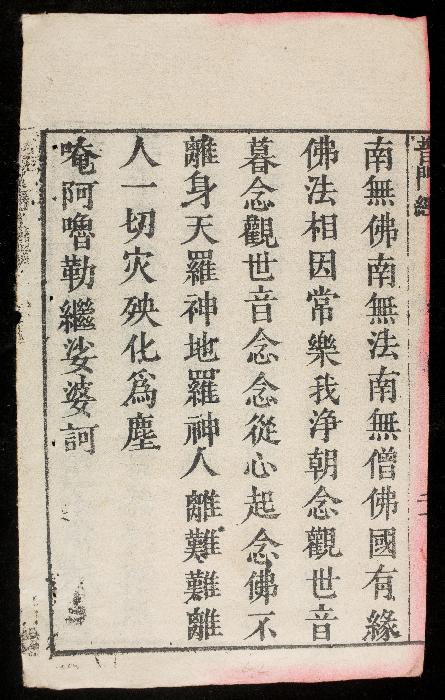 普門經
南無佛南無法南無僧佛國有緣
佛法相因常樂我淨朝念觀世音
暮念觀世音念念從心起念佛不
離身天羅神地羅神人離難難離
人一切灾殃化爲塵
唵阿嚕勒繼娑婆訶